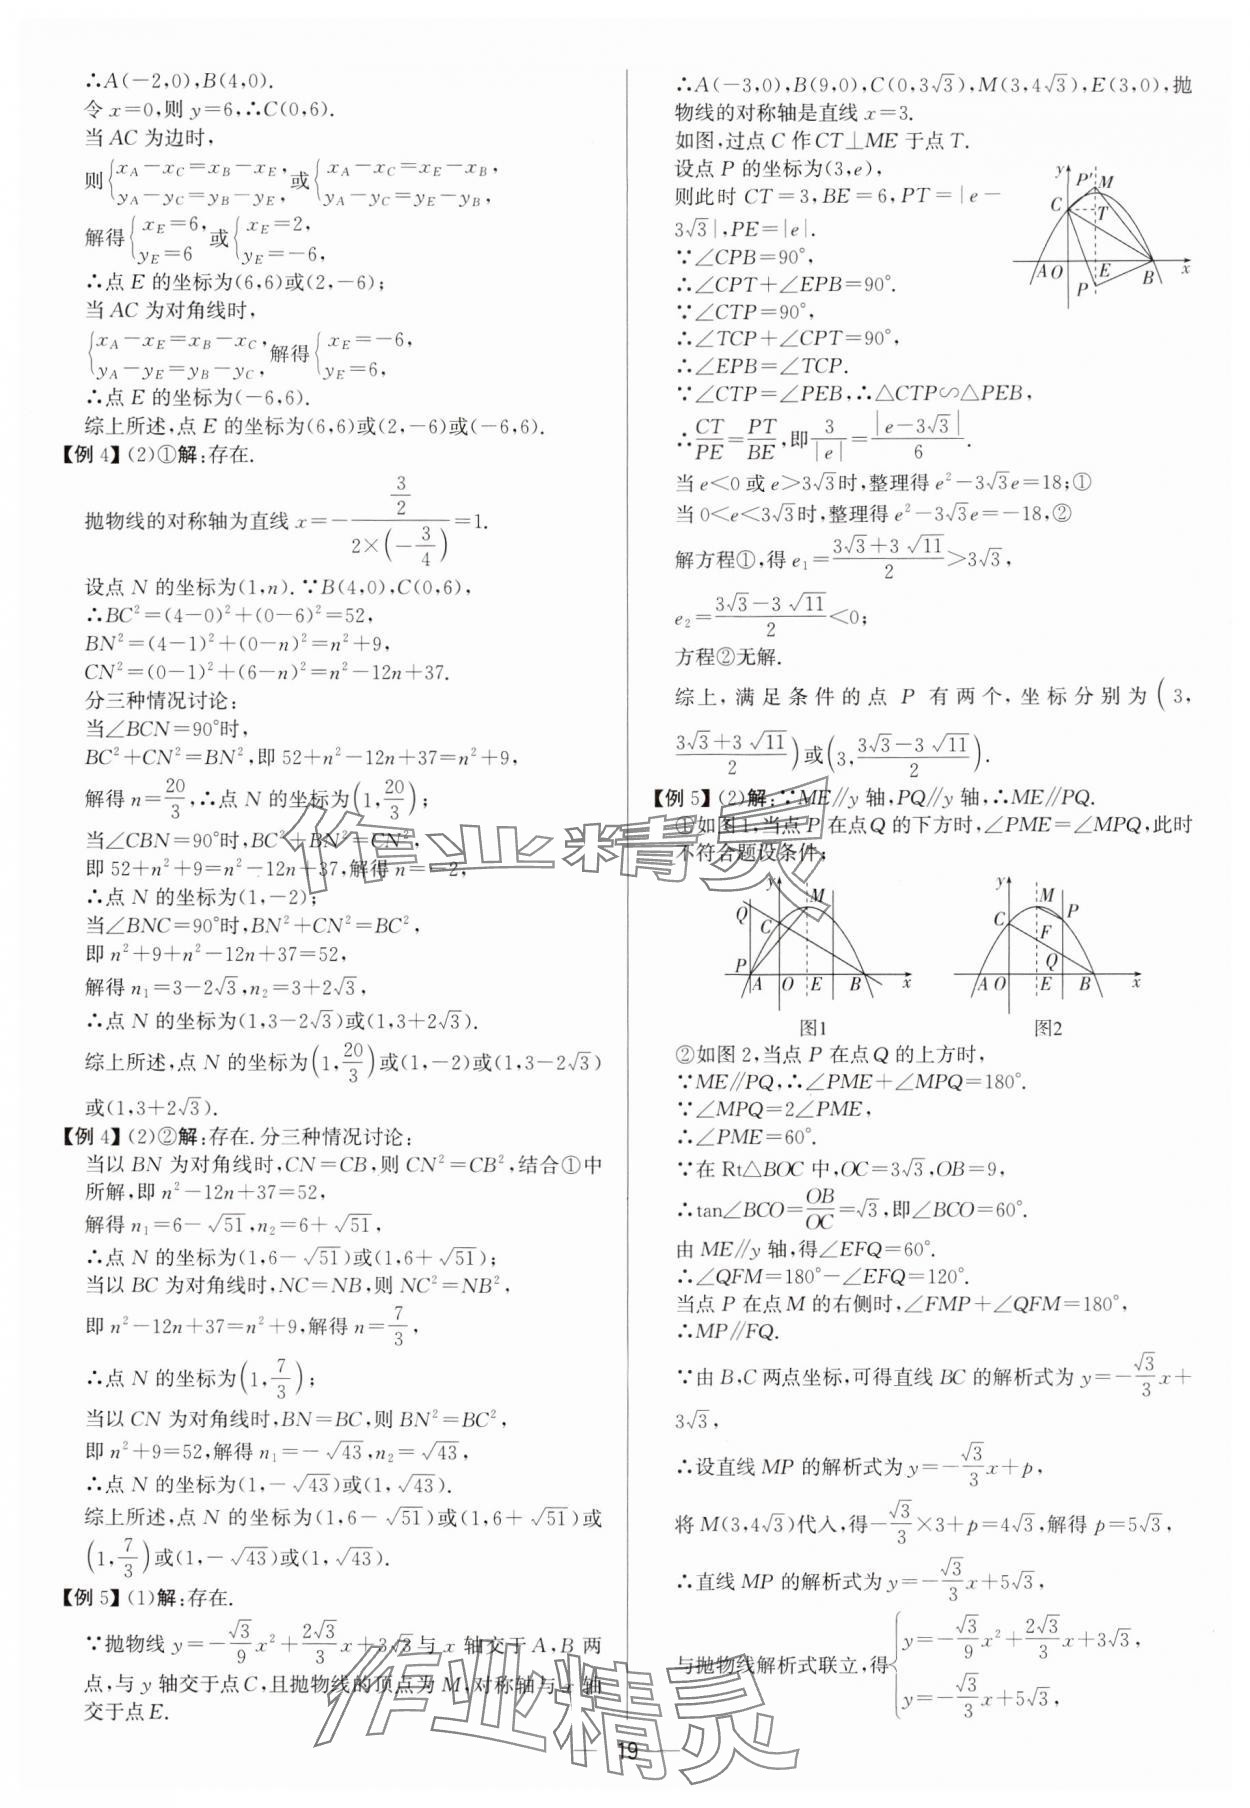 ∴A(-2,0),B(4,0).
令 x=0,则 y=6,∴C(0,6).
当 AC 为边时,
则{x_A-x_C=x_B-x_E, y_A-y_C=y_B-y_E, 或{x_A-x_C=x_E-x_B, y_A-y_C=y_E-y_B,
解得{x_E=6, y_E=6 或{x_E=2, y_E=-6,
∴点 E 的坐标为(6,6)或(2,-6);
当 AC 为对角线时,
{x_A-x_E=x_B-x_C, y_A-y_E=y_B-y_C, 解得{x_E=-6, y_E=6,
∴点 E 的坐标为(-6,6).
综上所述,点 E 的坐标为(6,6)或(2,-6)或(-6,6).
【例 4】(2)①解:存在.
抛物线的对称轴为直线 x=-(3/2)/(2×(-3/4))=1.
设点 N 的坐标为(1,n).∵B(4,0),C(0,6),
∴BC²=(4-0)²+(0-6)²=52,
BN²=(4-1)²+(0-n)²=n²+9,
CN²=(0-1)²+(6-n)²=n²-12n+37.
分三种情况讨论:
当∠BCN=90°时,
BC²+CN²=BN²,即 52+n²-12n+37=n²+9,
解得 n=20/3,∴点 N 的坐标为(1,20/3);
当∠CBN=90°时,BC²+BN²=CN²,
即 52+n²+9=n²-12n+37,解得 n=-2,
∴点 N 的坐标为(1,-2);
当∠BNC=90°时,BN²+CN²=BC²,
即 n²+9+n²-12n+37=52,
解得 n₁=3-2√3,n₂=3+2√3,
∴点 N 的坐标为(1,3-2√3)或(1,3+2√3).
综上所述,点 N 的坐标为(1,20/3)或(1,-2)或(1,3-2√3)
或(1,3+2√3).
【例 4】(2)②解:存在.分三种情况讨论:
当以 BN 为对角线时,CN=CB,则 CN²=CB²,结合①中
所解,即 n²-12n+37=52,
解得 n₁=6-√51,n₂=6+√51,
∴点 N 的坐标为(1,6-√51)或(1,6+√51);
当以 BC 为对角线时,NC=NB,则 NC²=NB²,
即 n²-12n+37=n²+9,解得 n=7/3,
∴点 N 的坐标为(1,7/3);
当以 CN 为对角线时,BN=BC,则 BN²=BC²,
即 n²+9=52,解得 n₁=-√43,n₂=√43,
∴点 N 的坐标为(1,-√43)或(1,√43).
综上所述,点 N 的坐标为(1,6-√51)或(1,6+√51)或
(1,7/3)或(1,-√43)或(1,√43).
【例 5】(1)解:存在.
∵抛物线 y=-√3/9x²+2√3/3x+3√3与 x 轴交于 A,B 两
点,与 y 轴交于点 C,且抛物线的顶点为 M,对称轴与 x 轴
交于点 E.
∴A(-3,0),B(9,0),C(0,3√3),M(3,4√3),E(3,0),抛
物线的对称轴是直线 x=3.
如图,过点 C 作 CT⊥ME 于点 T.
设点 P 的坐标为(3,e),
则此时 CT=3,BE=6,PT=|e-
3√3|,PE=|e|.
∵∠CPB=90°,
∴∠CPT+∠EPB=90°.
∵∠CTP=90°,
∴∠TCP+∠CPT=90°,
∴∠EPB=∠TCP.
∵∠CTP=∠PEB,∴△CTP∽△PEB,
∴CT/PE=PT/BE,即3/|e|=|e-3√3|/6.
y P' M
C T
A O E B x
P
当 e<0 或 e>3√3时,整理得 e²-3√3e=18;①
当 0<e<3√3时,整理得 e²-3√3e=-18,②
解方程①,得 e₁=(3√3+3√11)/2>3√3,
e₂=(3√3-3√11)/2<0;
方程②无解.
综上,满足条件的点 P 有两个,坐标分别为(3,
(3√3+3√11)/2)或(3,(3√3-3√11)/2).
【例 5】(2)解:∵ME∥y 轴,PQ∥y 轴,∴ME∥PQ.
①如图1,当点 P 在点 Q 的下方时,∠PME=∠MPQ,此时
不符合题设条件;
y M
Q C
P A O E B x
图1
y M P
C F
Q
A O E B x
图2
②如图 2,当点 P 在点 Q 的上方时,
∵ME∥PQ,∴∠PME+∠MPQ=180°.
∵∠MPQ=2∠PME,
∴∠PME=60°.
∵在 Rt△BOC 中,OC=3√3,OB=9,
∴tan∠BCO=OB/OC=√3,即∠BCO=60°.
由 ME∥y 轴,得∠EFQ=60°.
∴∠QFM=180°-∠EFQ=120°.
当点 P 在点 M 的右侧时,∠FMP+∠QFM=180°,
∴MP∥FQ.
∵由 B,C 两点坐标,可得直线 BC 的解析式为 y=-√3/3x+
3√3,
∴设直线 MP 的解析式为 y=-√3/3x+p,
将 M(3,4√3)代入,得-√3/3×3+p=4√3,解得 p=5√3,
∴直线 MP 的解析式为 y=-√3/3x+5√3,
与抛物线解析式联立,得{y=-√3/9x²+2√3/3x+3√3, y=-√3/3x+5√3,
作业精灵
作业精灵
19